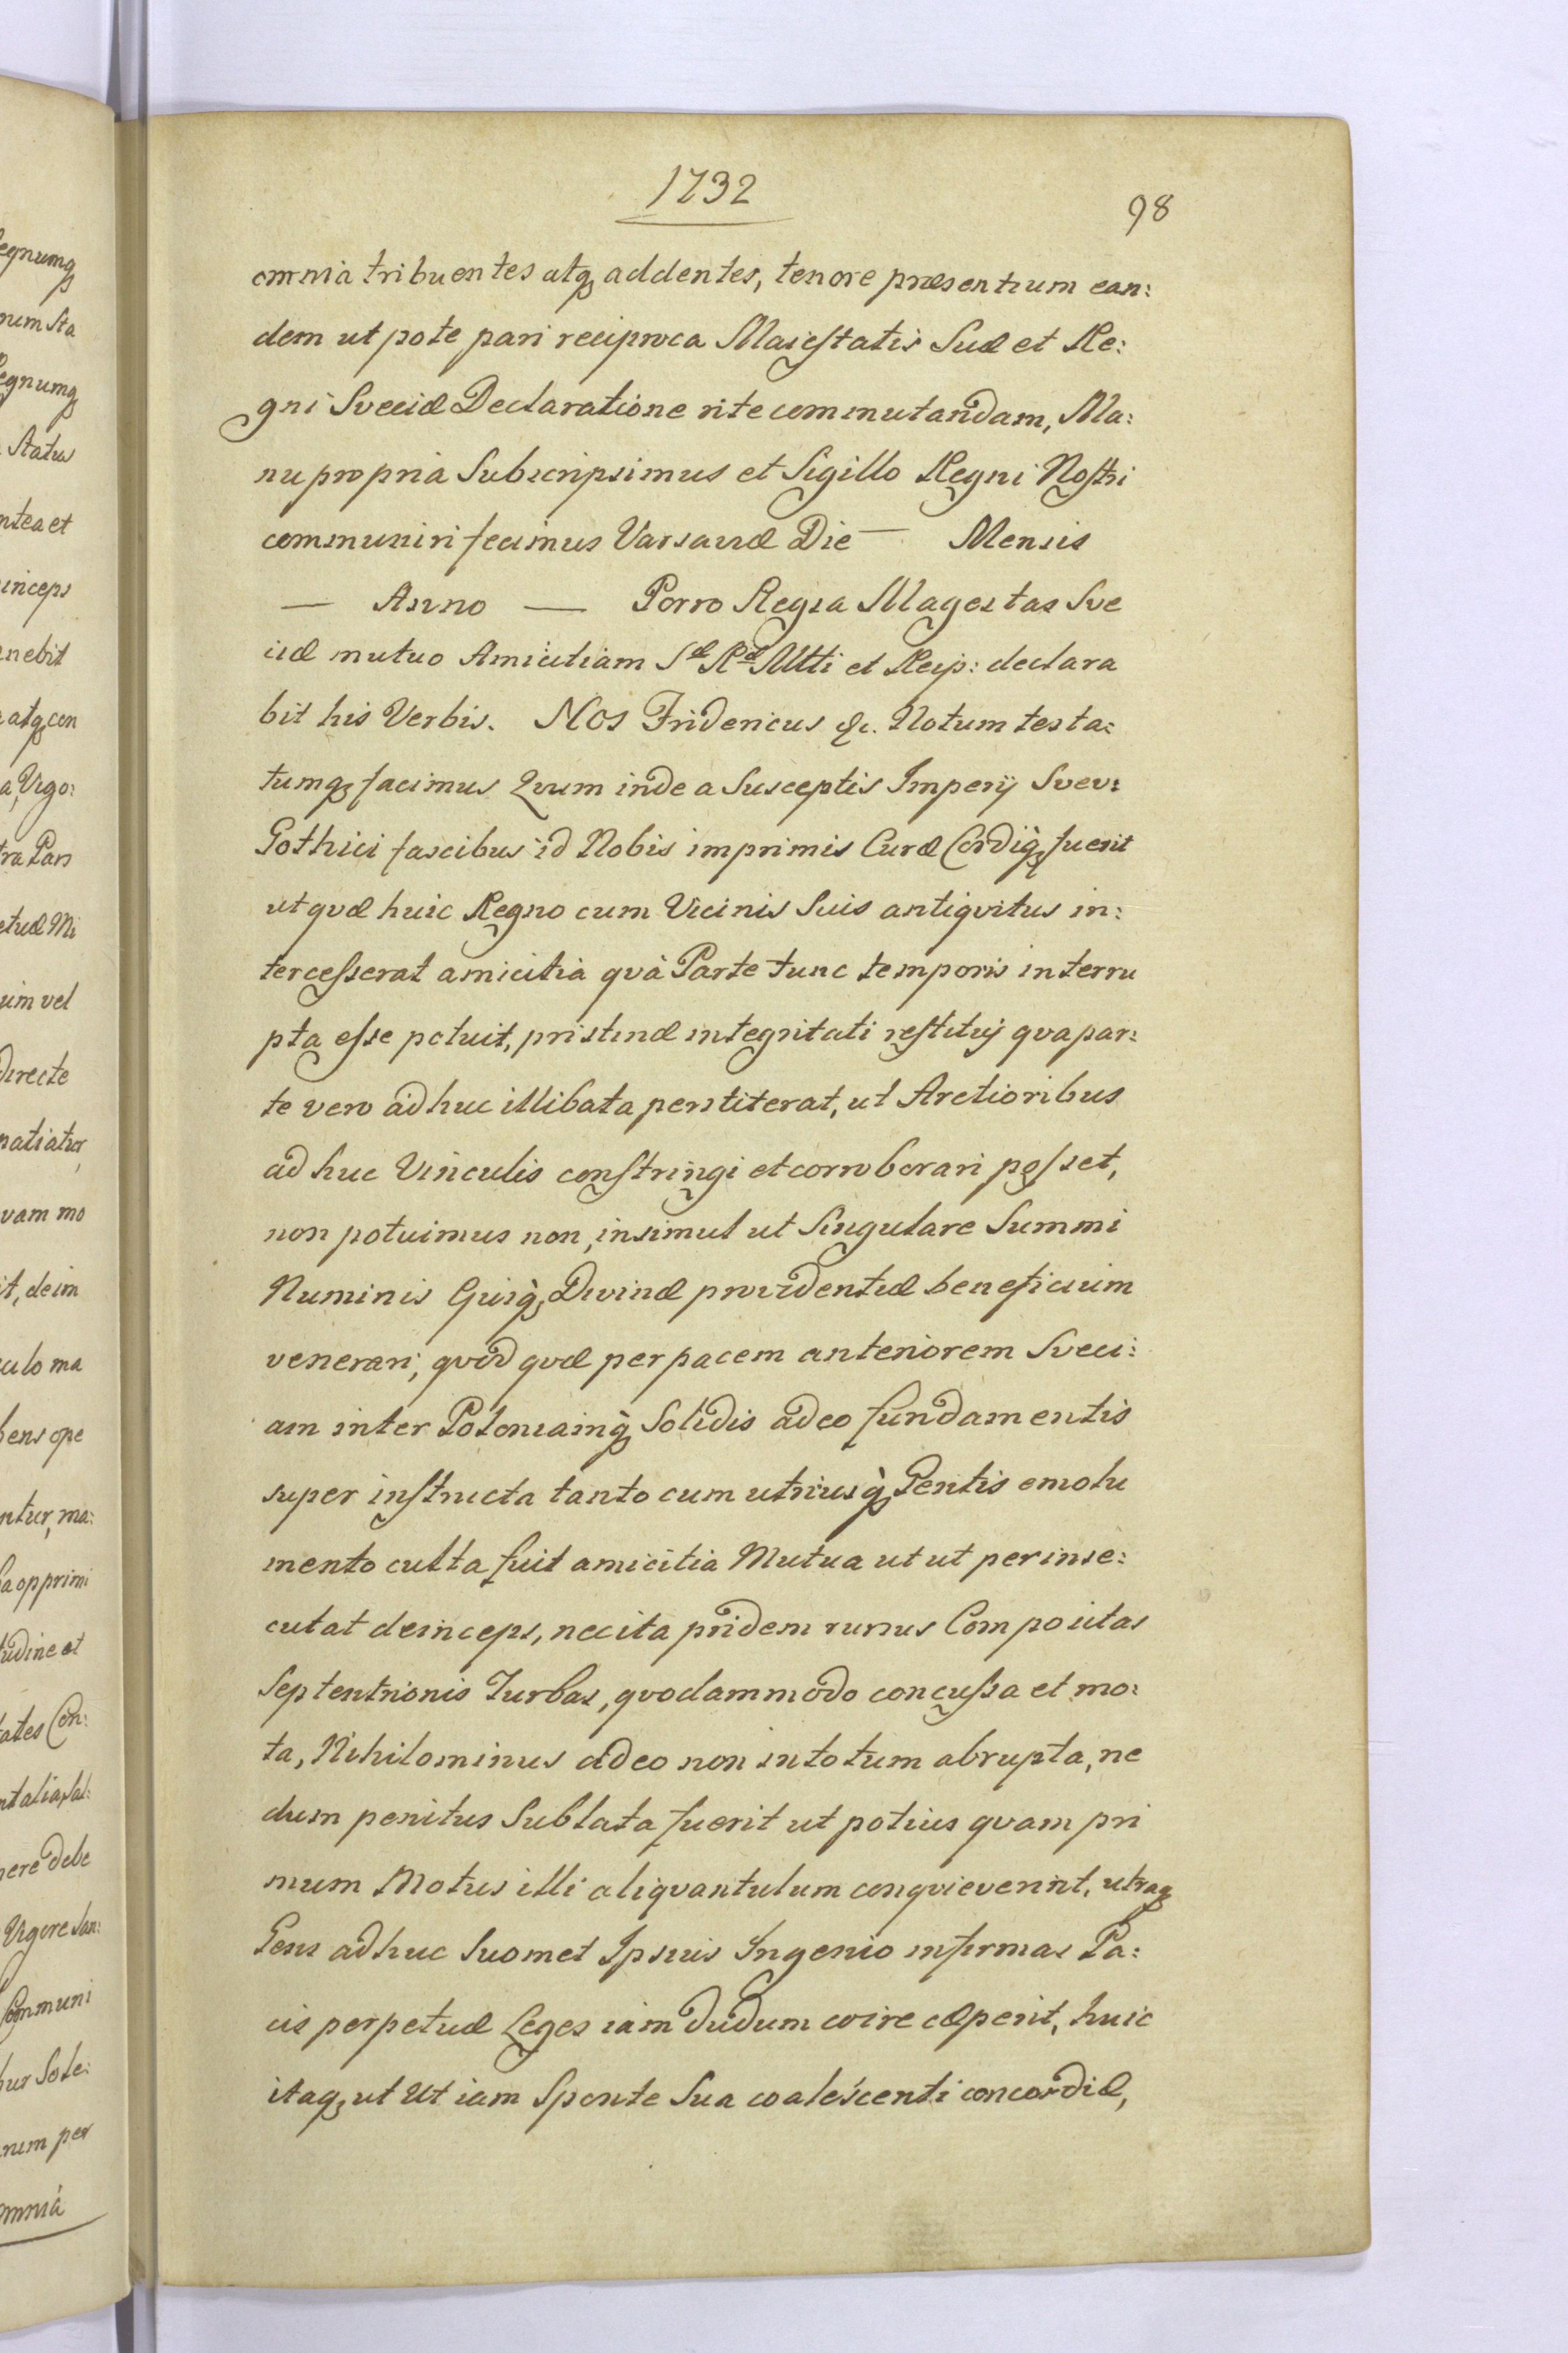 1732
98
omnia tribuentes atq; addentes, tenore præsentium ean:
dem ut pote pari reciproca Maiestatis Suæ et Re:
gni Sveciæ Declaratione rite commutandam, Ma:
nu propria Subscripsimus et Sigillo Regni Nostri
communiri fecimus Varsaviæ Die — Mensis
— Anno — Porro Regia Magestas Sve
ciæ mutuo Amicitiam Sæ Ræ Mtti et Reip: declara
bit his Verbis. Nos Fridericus &c. Notum testa:
tumq; facimus Qvum inde a Susceptis Imperij Sveo:
Gothici fascibus id Nobis imprimis Curæ Cordiq; fuerit
ut qvæ huic Regno cum Vicinis Suis antiqvitus in:
tercesserat amicitia qvà Parte tunc temporis interru
pta esse potuit, pristinæ integritati restituj qva par:
te vero ad huc illibata perstiterat, ut Arctioribus
ad huc Vinculis constringi et corroborari posset,
non potuimus non, insimul ut Singulare Summi
Numinis Divinæ providentiæ beneficium
venerari, qvod qvæ per pacem anteriorem Sveci:
am inter Poloniamq; Solidis adeo fundamentis
super instructa tanto cum utriusq; Gentis emolu
mento culta fuit amicitia Mutua ut ut per inse:
cutat deinceps, nec ita pridem rursus Compositas
Septentrionis Turbas, qvodammodo concussa et mo:
ta, Nihilominus adeo non in totum abrupta, ne
dum penitus Sublata fuerit ut potius qvam pri
mum Motus illi aliqvantulum conqvieverint, utraq;
Gens ad huc Suomet Ipsius Ingenio infirmas Pa:
cis perpetuæ Leges iam dudum coire cæperit, huic
itaq; ut Ut iam Sponte Sua coalescenti concordiæ,